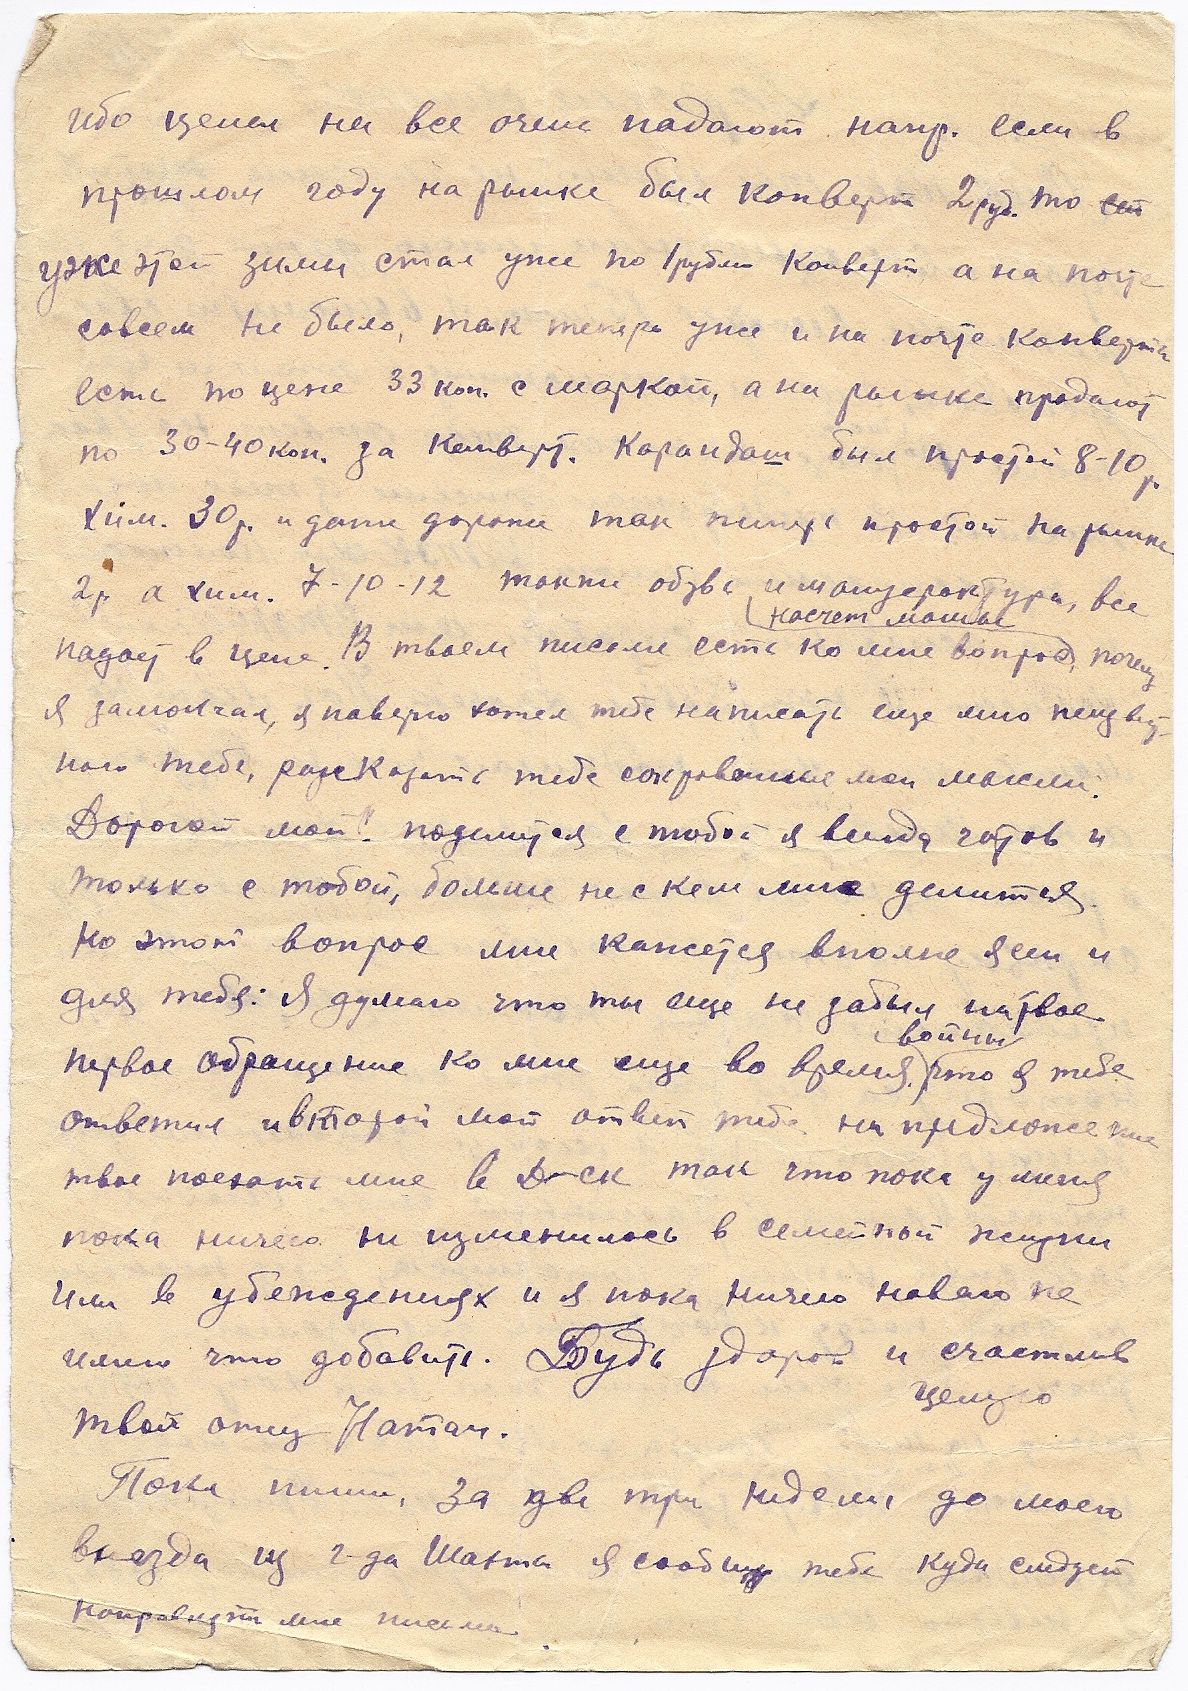 ибо цены на все очень падают напр. если в
прошлом году на рынке был конверт 2 руб. то
уже этой зимы стал уже по 1 рублю конверт а на почте
совсем не было, так теперь уже и на почте конверты
есть по цене 33 коп. с маркой, а на рынке продают
по 30-40 коп. за конверт. Карандаш был простой 8-10 р.
хим. 30 р. и даже дороже так теперь простой на рынке
2 р а хим. 7-10-12 также обувь и мануфактура, все
насчет мамы
падает в цене. В твоем письме есть ко мне вопрос, почему
я замолчал, я наверно хотел тебе написать еще мно неизвест-
ного тебе, рассказать тебе сокровенные мои мысли.
Дорогой мой! поделится с тобой я всегда готов и
только с тобой, больше не с кем мне делится.
Но этот вопрос мне кажется вполне ясен и
для тебя: Я думаю что ты еще не забыл на твое
войны
первое обращение ко мне еще во время, что я тебе
ответил и второй мой ответ тебе на предложение
твое поехать мне в Д-ск так что пока у меня
пока ничего не изменилось в семейной жизни
или в убеждениях и я пока ничего нового не
имею что добавить. Будь здоров и счастлив
целую
твой отец Натан.
Пока пиши, за две три недели до моего
выезда из г-да Шахты я сообщу тебе куда следует
направлять мне письма.